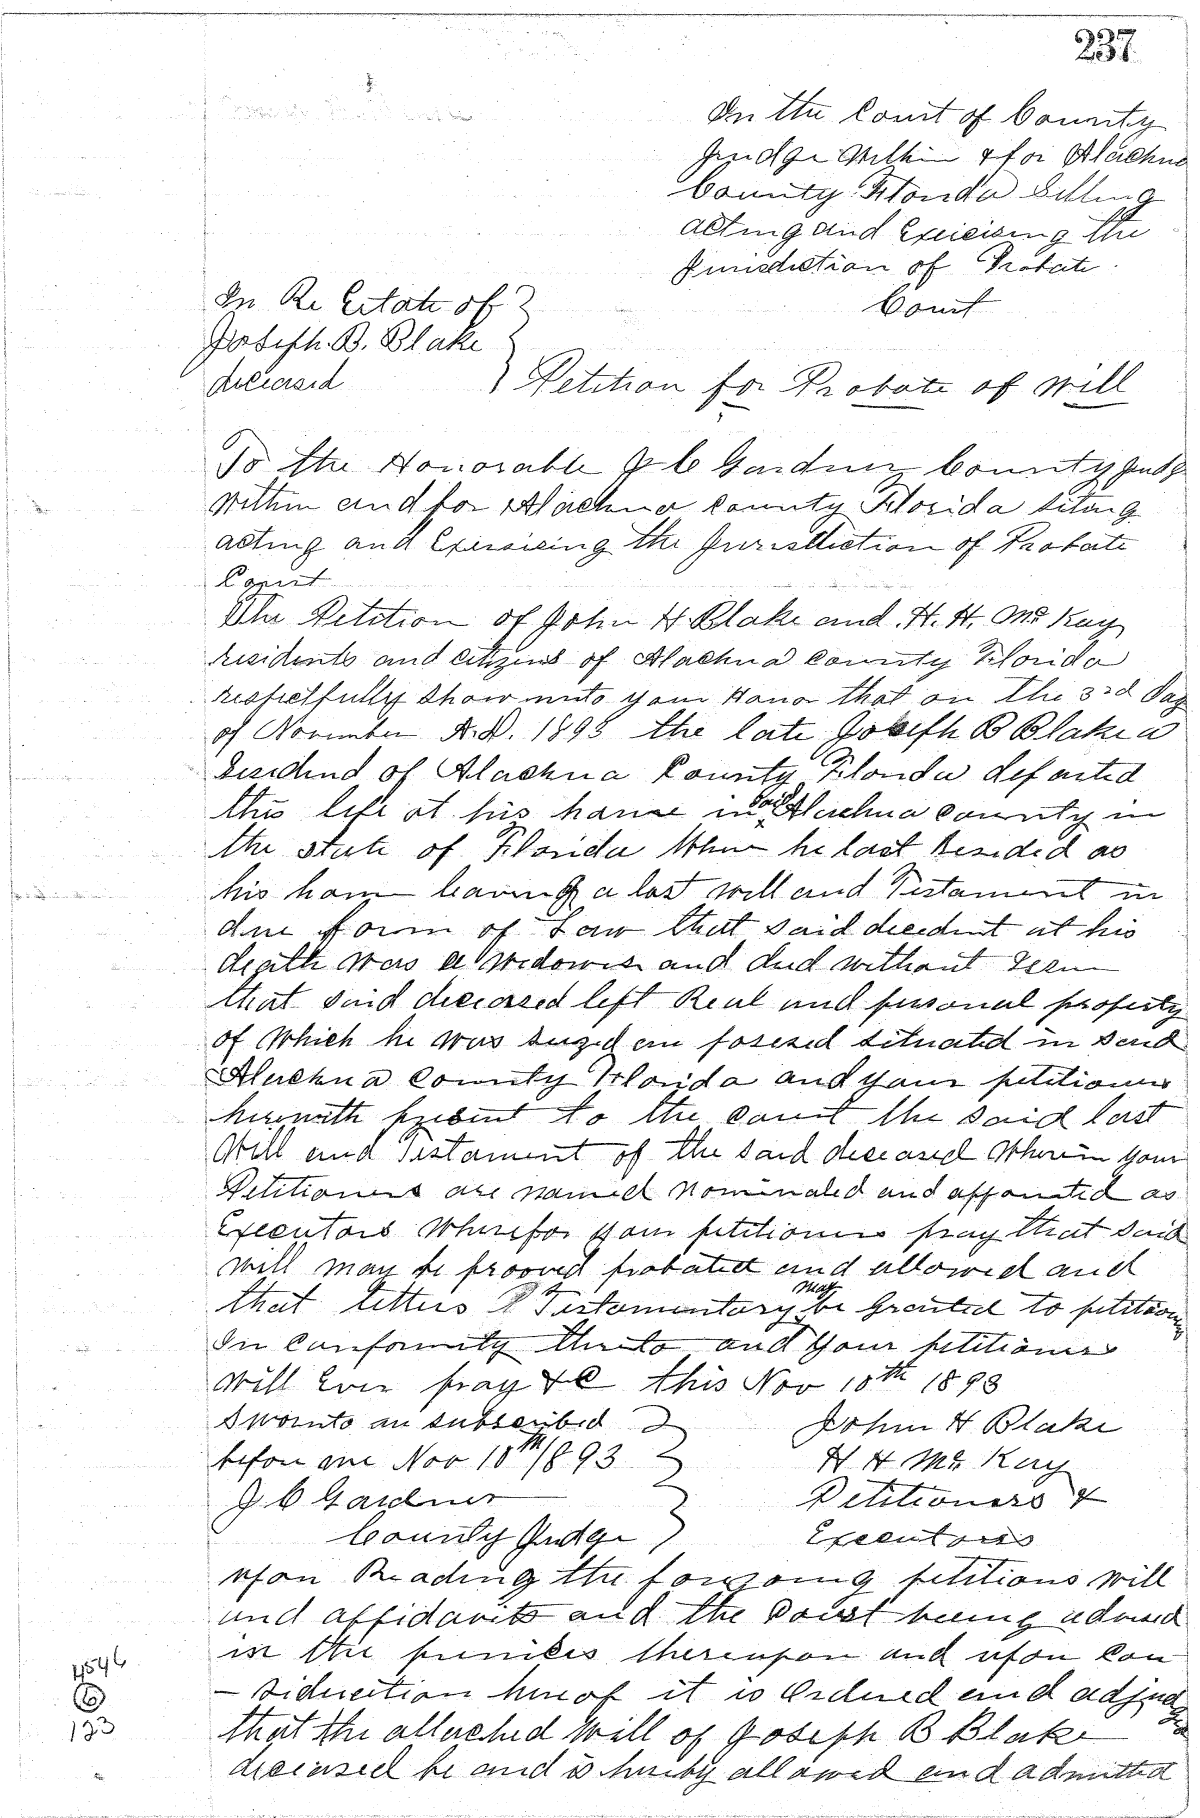 237
In the Court of County
Judge Within & for Alachua
County Florida Sitting
acting and Exicising the
Jurisdiction of Probate
Court
In Re Estate of
Joseph. B. Blake
deceased
Petition for Probate of Will
To the Honorable J C Gardner County Judge
Within and for Alachua County Florida siting
acting and Exersising the Jurisdiction of Probate
Court
The Petition of John H Blake and H. H. Mc Kay
residents and Citizens of Alachua County Florida
respectfully Show unto your Honor that on the 3rd Day
of November A.D. 1893 the late Joseph B Blake a
of Alachua County Florida departed
this life at his home in said Alachua County in
the state of Florida Where he last Resided as
his home leaving a last will and Testament in
due form of Law that said decedent at his
death was a widower and died without
that said deceased left Real and personal property
of Which he was situated in said
Alachua County Florida and your petitioners
herewith present to the Court the said last
Will and Testament of the said deceased Wherein your
Petitioners are named nominated and appointed as
Executors Wherefor your petitioners pray that said
will may be prooved probated and allowed and
that letters Testamentary may be Granted to petitioners
In Conformity thereto and your petitioners
Will Ever pray &C this Nov 10th 1893
Sworn to an subscribed
before me Nov 10th 1893
J. C Gardner
County Judge
John H Blake
H H Mc Kay
Petitioners &
Executors
upon Reading the forgoing petitions will
and affidavits and the Court being advised
in the premises thereupon and upon Con
- sideration hereof it is Ordered and adjudged
that the attached Will of Joseph B Blake
deceased be and is hereby allowed and admitted
4546
6
123